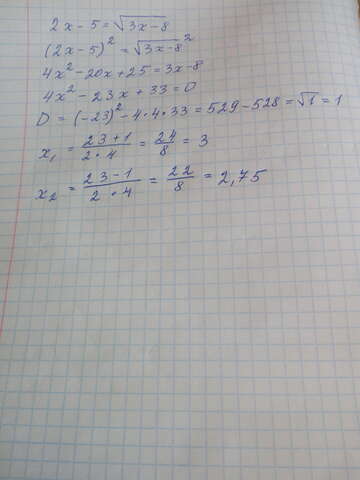 2x - 5 = √3x-8
(2x-5)² = √3x-8²
4x² - 20x + 25 = 3x - 8
4x² - 23x + 33 = 0
D = (-23)² - 4·4·33 = 529 - 528 = √1 = 1
x₁ = 23+1/2·4 = 24/8 = 3
x₂ = 23-1/2·4 = 22/8 = 2,75